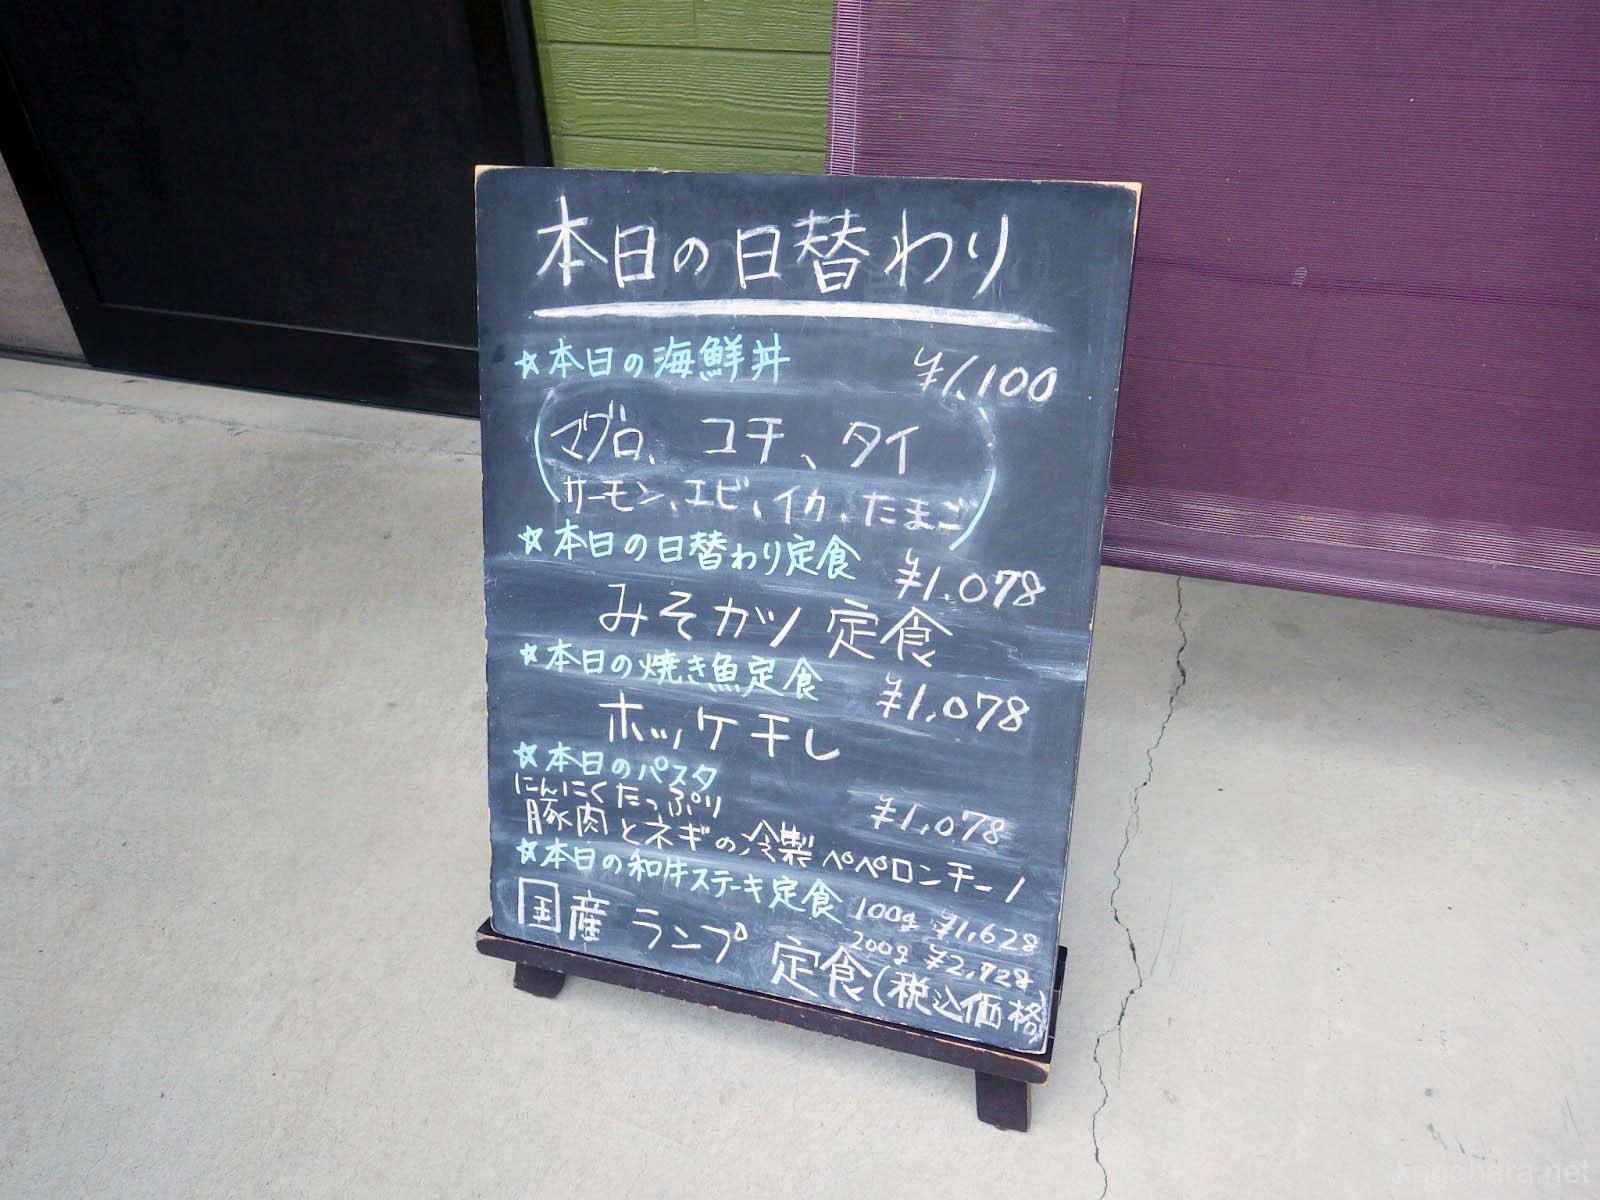 本日の日替わり
☆本日の海鮮丼 ¥1,100
(マグロ、コチ、タイ
サーモン、エビ、イカ、たまご)
☆本日の日替わり定食 ¥1,078
みそカツ定食
☆本日の焼き魚定食 ¥1,078
ホッケ干し
☆本日のパスタ
にんにくたっぷり ¥1,078
豚肉とネギの冷製ペペロンチーノ
☆本日の和牛ステーキ定食 100g ¥1,628
200g ¥2,728
国産ランプ定食(税込価格)
kagohara.net